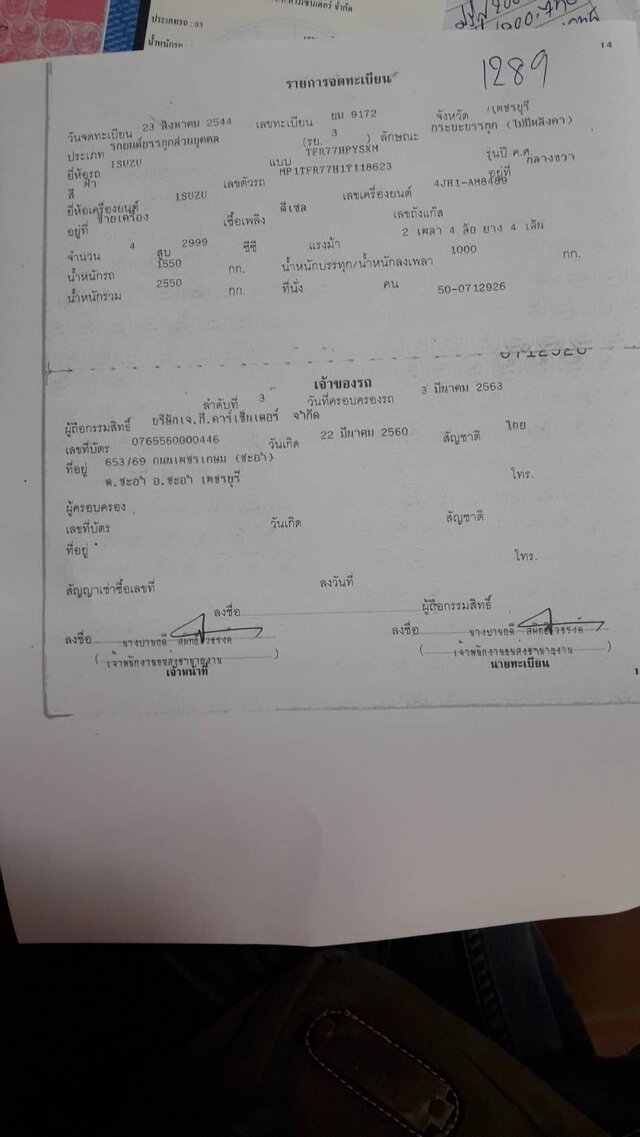 ประเภทรถ : 03
น้ำหนักรถ
14
1289
รายการจดทะเบียน
วันจดทะเบียน 23 สิงหาคม 2544 เลขทะเบียน ยม 9172 จังหวัด เพชรบุรี
ประเภท รถยนต์บรรทุกส่วนบุคคล (รย. 3 ) ลักษณะ กระบะบรรทุก (ไม่มีหลังคา)
ยี่ห้อรถ ISUZU แบบ TFR77HPYSXM รุ่นปี ค.ศ.
สี ฟ้า เลขตัวรถ MP1TFR77H1T118623 อยู่ที่ กลางขวา
ยี่ห้อเครื่องยนต์ ISUZU เลขเครื่องยนต์ 4JH1-AM8489
อยู่ที่ ซ้ายเครื่อง เชื้อเพลิง ดีเซล เลขถังแก๊ส
จำนวน 4 สูบ 2999 ซีซี แรงม้า 2 เพลา 4 ล้อ ยาง 4 เส้น
น้ำหนักรถ 1550 กก. น้ำหนักบรรทุก/น้ำหนักลงเพลา 1000 กก.
น้ำหนักรวม 2550 กก. ที่นั่ง คน 50-0712926
0712926
เจ้าของรถ
ลำดับที่ 3 วันที่ครอบครองรถ 3 มีนาคม 2563
ผู้ถือกรรมสิทธิ์ บริษัทเจ.ที.คาร์เซ็นเตอร์ จำกัด
เลขที่บัตร 0765560000446 วันเกิด 22 มีนาคม 2560 สัญชาติ ไทย
ที่อยู่ 653/69 ถนนเพชรเกษม (ชะอำ)
ต.ชะอำ อ.ชะอำ เพชรบุรี โทร.
ผู้ครอบครอง
เลขที่บัตร วันเกิด สัญชาติ
ที่อยู่
โทร.
สัญญาเช่าซื้อเลขที่ ลงวันที่
ลงชื่อ ผู้ถือกรรมสิทธิ์
ลงชื่อ ลงชื่อ
( เจ้าพนักงานขนส่งชำนาญงาน ) ( เจ้าพนักงานขนส่งชำนาญงาน )
เจ้าหน้าที่ นายทะเบียน